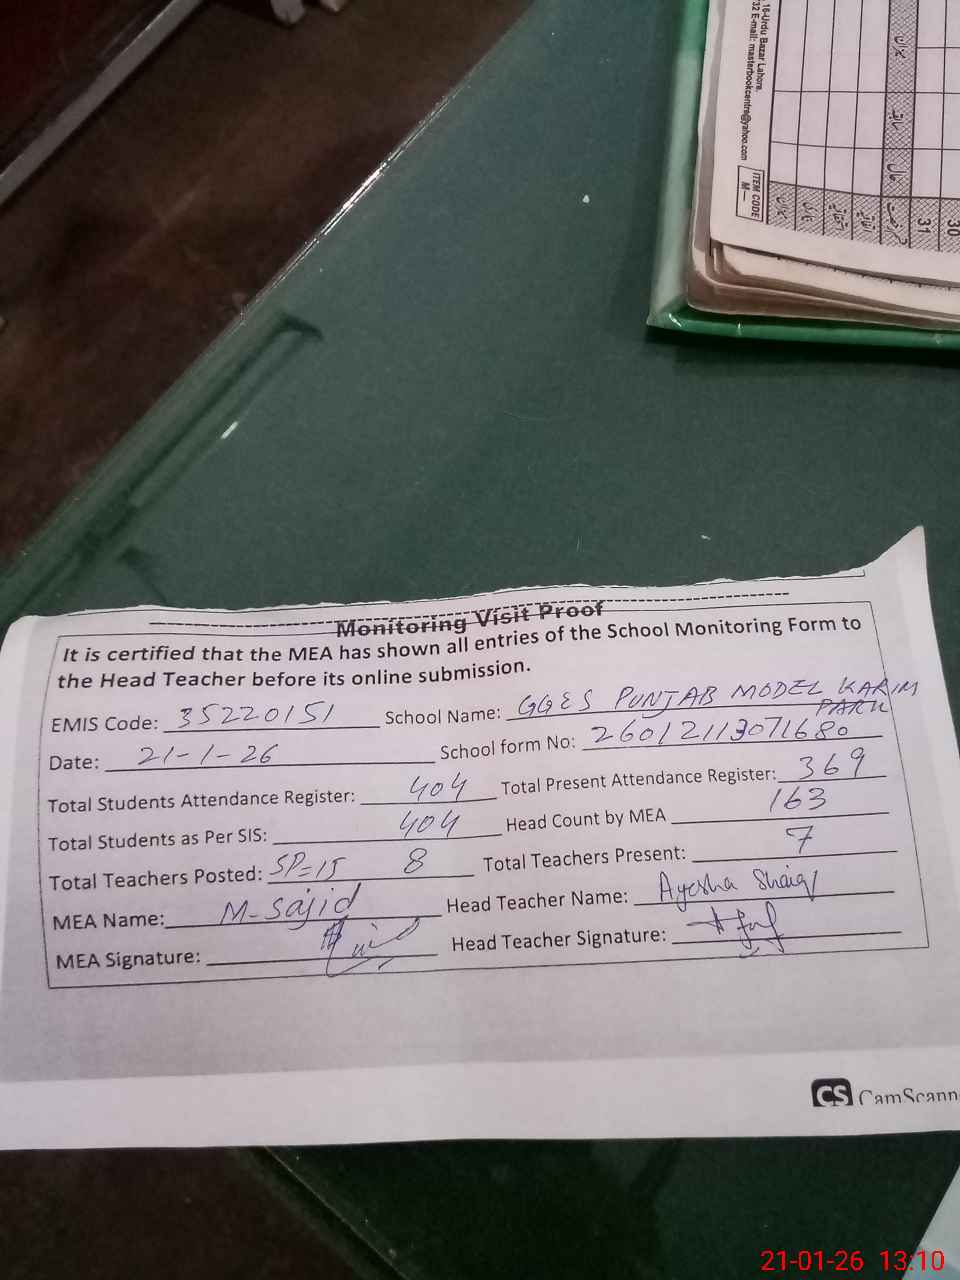 16-Urdu Bazar Lahore.
32 E-mail: masterbookcentre@yahoo.com
ITEM CODE
M—
30
31
Monitoring Visit Proof
It is certified that the MEA has shown all entries of the School Monitoring Form to
the Head Teacher before its online submission.
EMIS Code: 35220151 School Name: GGES PUNJAB MODEL KARIM
PARK
Date: 21-1-26 School form No: 26012113071680
Total Students Attendance Register: 404 Total Present Attendance Register: 369
Total Students as Per SIS: 404 Head Count by MEA 163
Total Teachers Posted: SP=15 8 Total Teachers Present: 7
MEA Name: M-Sajid Head Teacher Name: Ayesha Shaiq
MEA Signature: Head Teacher Signature:
CS CamScann
21-01-26 13:10